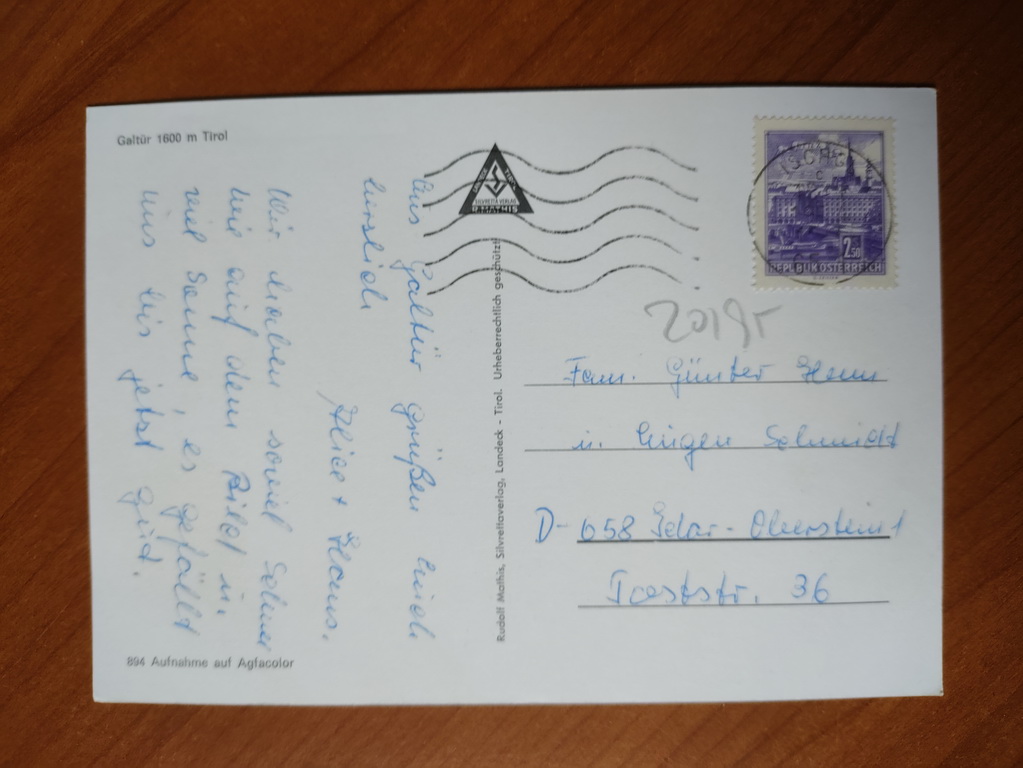 Galtür 1600 m Tirol
Aus Galtür grüßen Euch
herzlich
Alice + Hans.
Wir haben soviel Schnee
wie auf dem Bild u.
viel Sonne, es gefällt
uns bis jetzt gut.
894 Aufnahme auf Agfacolor
SILVRETTA VERLAG
R. MATHIS
Rudolf Mathis, Silvrettaverlag, Landeck - Tirol. Urheberrechtlich geschützt!
2.50
REPUBLIK ÖSTERREICH
Fam. Günter Henn
u. Eugen Schmidt
D-658 Idar-Oberstein 1
Taststr. 36